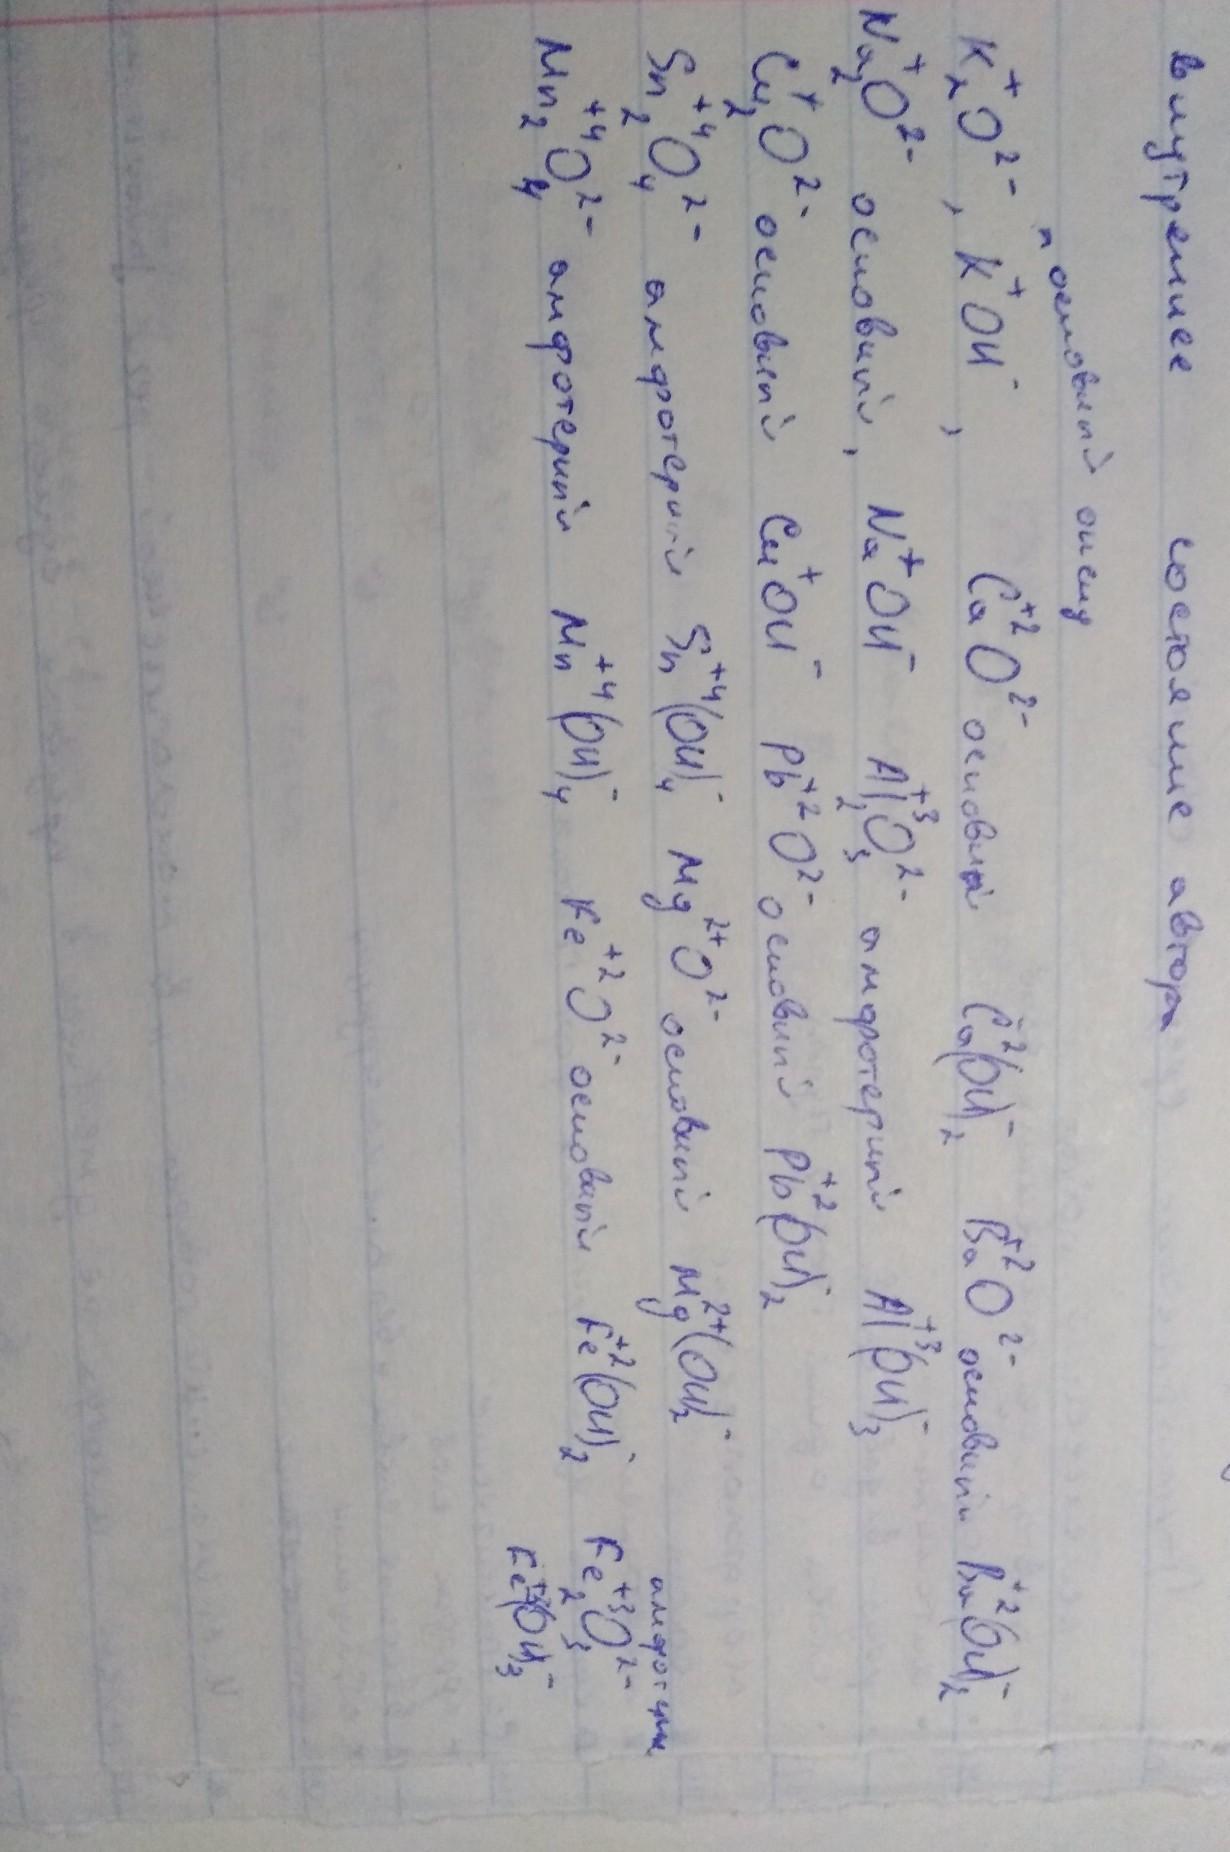 внутреннее состояние автора
основный оксид
K₂⁺O²⁻, K⁺OH⁻, Ca⁺²O²⁻ основный Ca⁻²(OH)₂⁻ Ba⁺²O²⁻ основный Ba⁺²(OH)₂⁻
Na₂⁺O²⁻ основный, Na⁺OH⁻ Al₂⁺³O₃²⁻ амфотерный Al⁺³(OH)₃⁻
Cu₂⁺O²⁻ основный Cu⁺OH⁻ Pb⁺²O²⁻ основный Pb⁺²(OH)₂⁻
Sn₂⁺⁴O₄²⁻ амфотерный Sn⁺⁴(OH)₄⁻ Mg²⁺O²⁻ основный Mg²⁺(OH)₂⁻
амфотерн.
Mn₂⁺⁴O₄²⁻ амфотерный Mn⁺⁴(OH)₄⁻ Fe⁺²O²⁻ основный Fe⁺²(OH)₂⁻ Fe₂⁺³O₃²⁻
Fe⁺³(OH)₃⁻